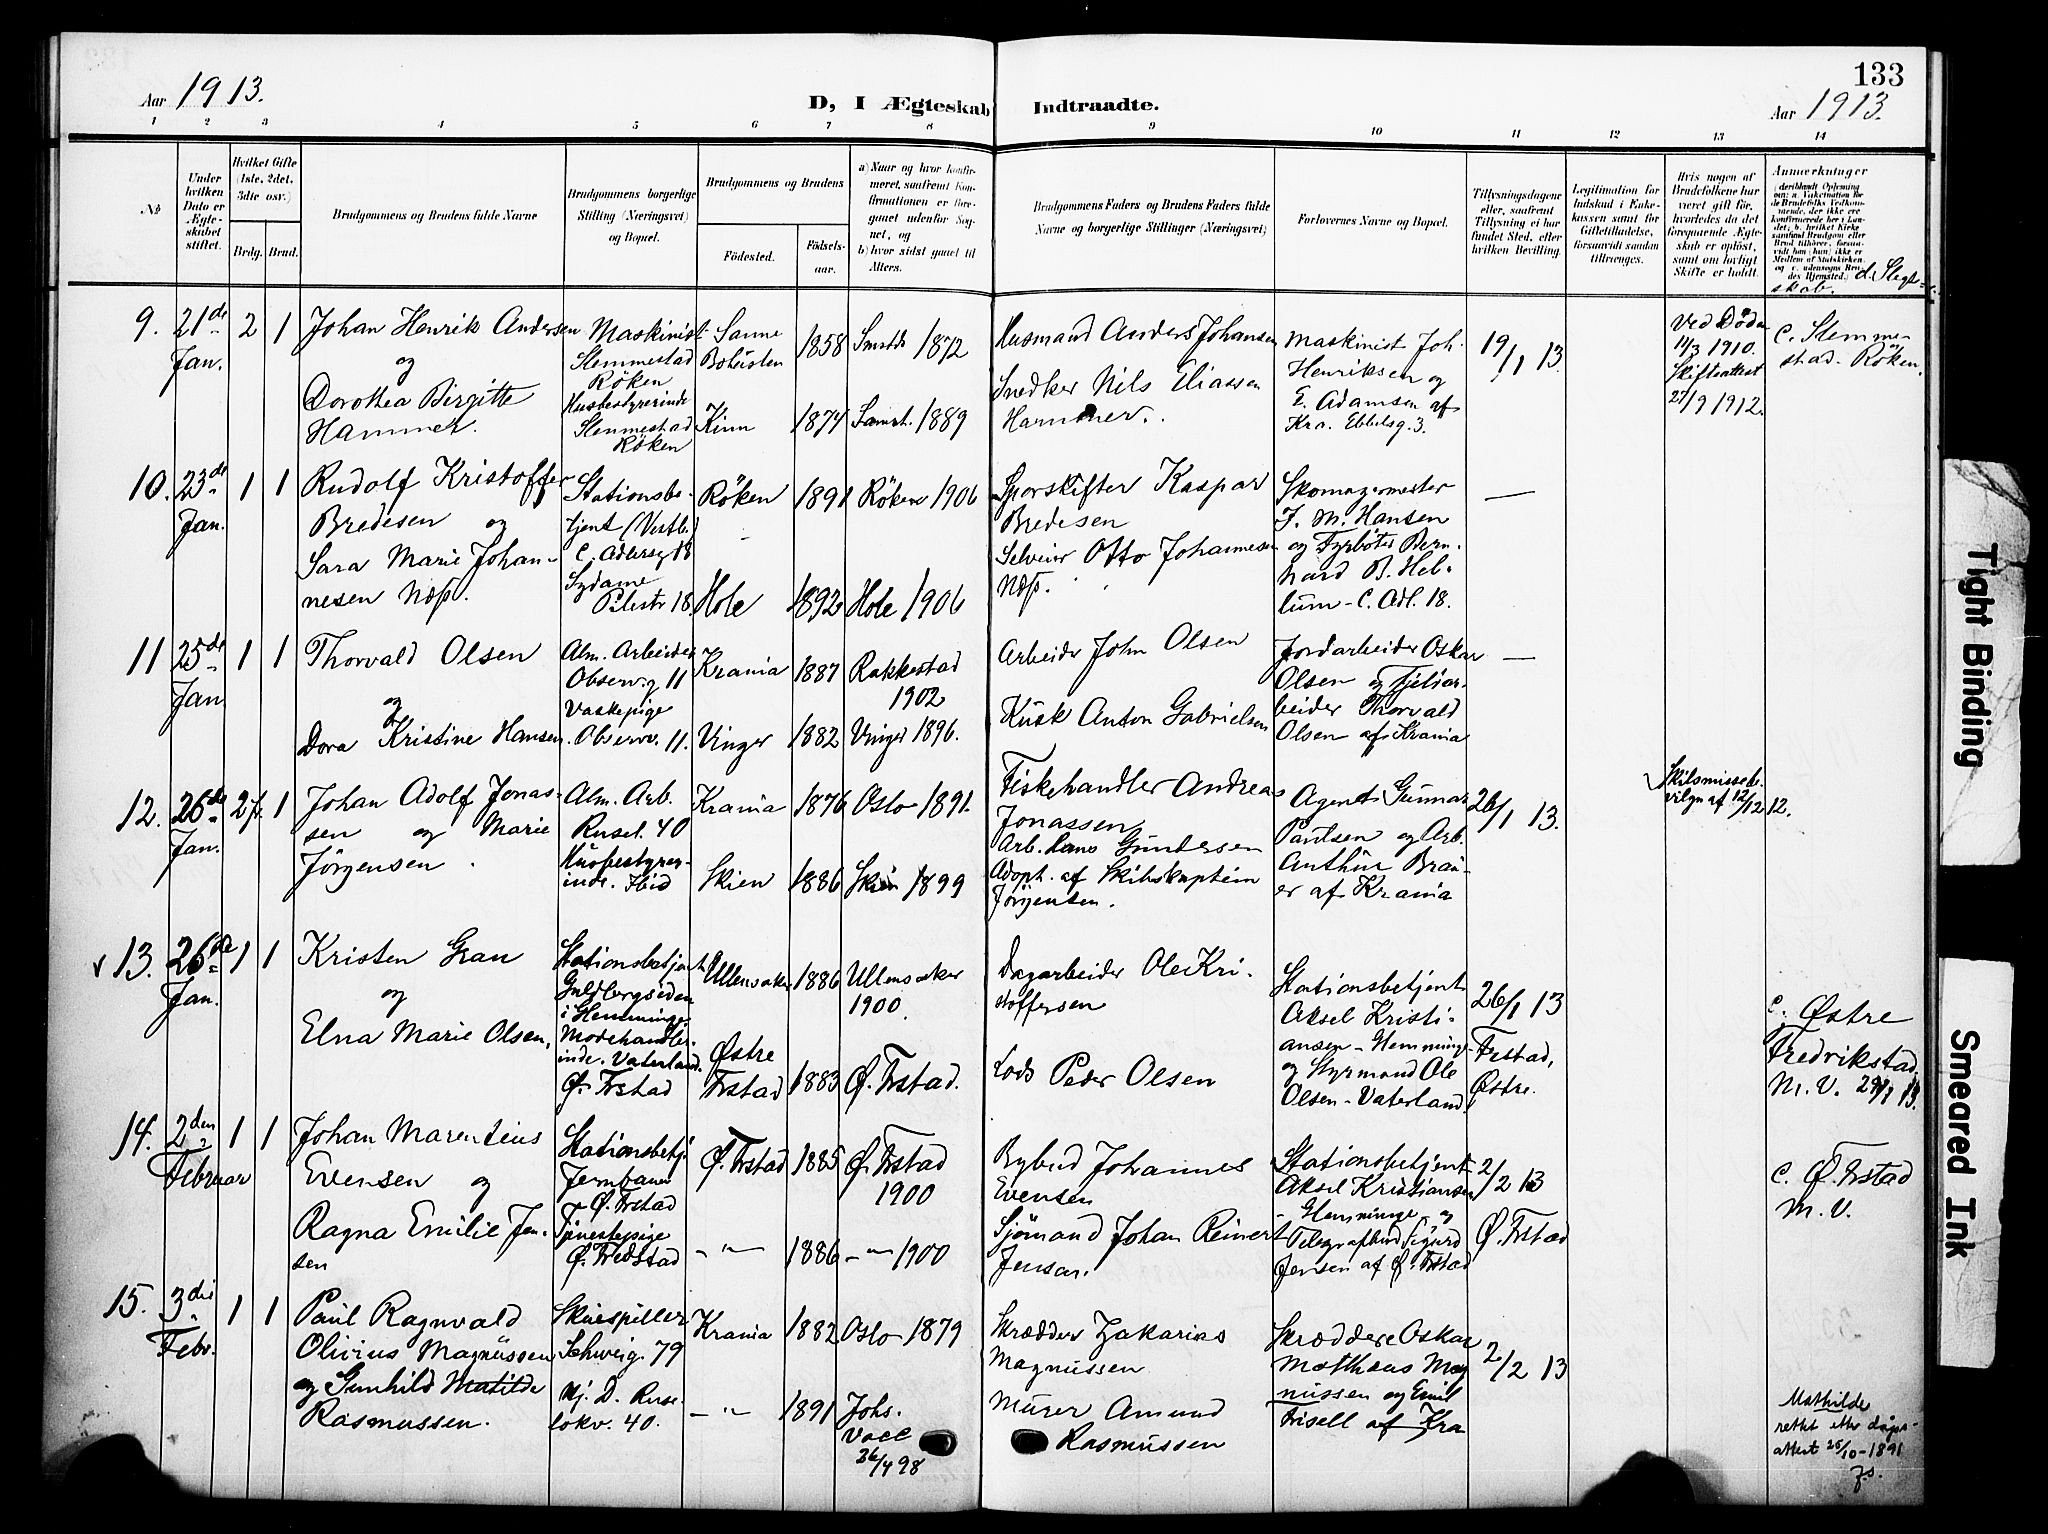 133
Aar 1913.
D, I Ægteskab Indtraadte.
Aar 1913.
1 2 3 4 5 6 7 8 9 10 11 12 13 14
No
Under hvilken Dato er Ægteskabet stiftet.
Hvilket Gifte (1ste, 2det, 3dte osv.)
Brdg. Brud.
Brudgommens og Brudens fulde Navne
Brudgommens borgerlige Stilling (Næringsvei) og Bopæl.
Brudgommens og Brudens
Fødested.
Fødselsaar.
a) Naar og hvor konfirmeret, saafremt Konfirmationen er foregaaet udenfor Sognet, og
b) hvor sidst gaaet til Alters.
Brudgommens Faders og Brudens Faders fulde Navne og borgerlige Stillinger (Næringsvei)
Forlovernes Navne og Bopæl.
Tillysningsdagene eller, saafremt Tillysning ei har fundet Sted, efter hvilken Bevilling.
Legitimation for Indskud i Enkekassen samt for Giftetilladelse, forsaavidt saadan tiltrænges.
Hvis nogen af Brudefolkene har været gift før, hvorledes da det foregaaende Ægteskab er opløst, samt om lovligt Skifte er holdt.
Anmærkninger
d. Slegtskab.
9. 21de Jan. 2 1
Johan Henrik Andersen
og
Dorothea Birgitte
Hammer.
Maskinist
Slemmestad
Röken
Husbestyrerinde
Slemmestad
Röken
Sanne
Bohuslen
1858
1872
Kinn 1874
1889
Husmand Anders Johansen
Snedker Nils Eliassen
Hammer.
Maskinist Joh.
Henriksen og
E. Adamsen af
Kra. Ebbelsg. 3.
19/1 13.
Ved Døden
11/3 1910.
Skifteattest
27/9 1912.
c. Slemmestad. Röken.
10. 23de Jan. 1 1
Rudolf Kristoffer
Bredesen og
Sara Marie Johannesen
Stationsbetjent (Vestb.)
C. Adlersg 18
Sydame
Pilestr 18
Röken 1891 Röken 1906
Hole 1892 Hole 1906
Sporskifter Kaspar
Bredesen
Selveier Otto Johannesen
Skomagermester
J. M. Hansen
og Fyrbøter Bernhard B. Hellum - C. Adl. 18.
—
11 25de Jan. 1 1
Thorvald Olsen
og
Dora Kristine Hansen.
Alm. Arbeider
Observ.g 11
Vaskepige
Observ. 11.
Krania 1887 Rakkestad
1902
Vinger 1882 Vinger 1896.
Arbeider John Olsen
Kusk Anton Gabrielsen
Jordarbeider Oskar
Olsen og
Thorvald
Olsen af Krania
—
12. 26de Jan. 2f. 1
Johan Adolf Jonassen og Marie
Jörgensen.
Alm. Arb.
Rusel. 40
Husbestyrerinde. Ibid
Krania 1876 Oslo 1891.
Skien 1886 Skien 1899
Fiskehandler Andreas
Jonassen
Arb. Gundersen
Adopt. af Skibskaptein
Jörgensen.
Agent Gunnar
Paulsen og Arb.
Arthur Brauer af Krania
26/1 13.
Skilsmissebevilgn af 12/12 12.
13. 26de Jan. 1 1
Kristen Gran
og
Elna Marie Olsen.
Stationsbetjent
i Hemminge
Modehandlerinde. Vaterland.
Ø. Frstad
Ullensaker 1886 Ullensaker
1900.
Østre
Frstad 1883 Ø. Frstad.
Dagarbeider Ole Kristoffersen
Lods Peder Olsen
Stationsbetjent
Aksel Kristiansen - Hemminge
og Styrmand Ole
Olsen - Vaterland
26/1 13
Frstad,
Østre.
c. Østre
Fredrikstad.
M. V.
14. 2den Februar 1 1
Johan Marentius
Evensen og
Ragna Emilie Jensen
Stationsbetj.
Jernbanen
Ø. Frstad
Tjenestepige
Ø. Fredstad
Ø. Frstad 1885 Ø. Frstad
1900
— " — 1886 — " — 1900
Bybud Johannes
Evensen
Sjømand Johan Reinert
Jensen.
Stationsbetjent
Aksel Kristiansen
- Hemminge og
Telegrafbud Sigurd
Jensen af Ø. Frstad
2/2 13
Ø. Frstad
c. Ø. Frstad
M. V.
15. 3die Febr. 1 1
Paul Ragnvald
Olivius Magnussen
og Gunhild Matilde
Rasmussen.
Skuespiller
Schweig. 79
Krania 1882 Oslo 1879
— " — 1891 Johs.
Vacc
26/4 98
Skrædder Zakarias
Magnussen
Murer Amund
Rasmussen
Skræddere Oskar
Matthæus Magnussen og Emil
Frisell af Kra
2/2 13
Mathilde
rettet efter dåpsattest 25/10-1891
Tight Binding
Smeared Ink